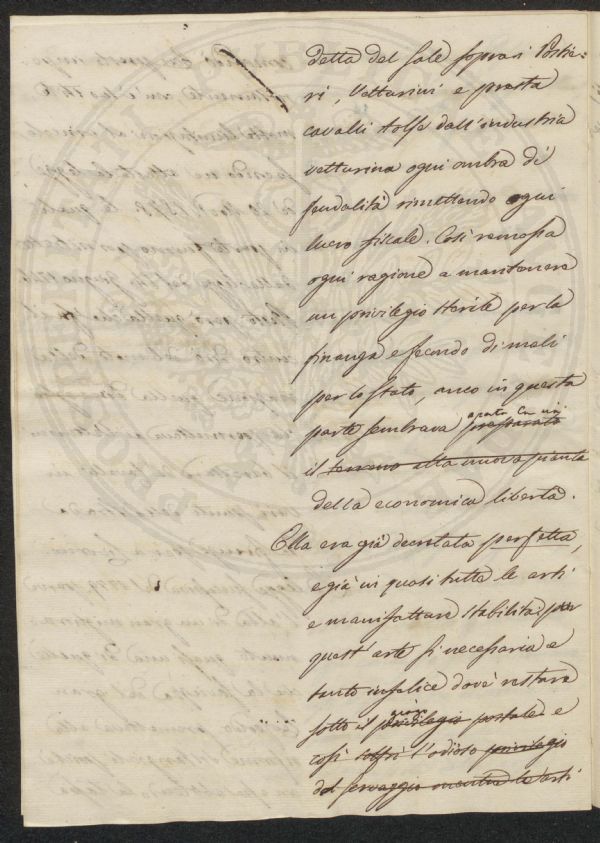 detta del sale sopra i Postie=
ri, Vetturini e presta
cavalli tolse dall'industria
vetturina ogni ombra di
feudalità rimettendo ogni
lucro fiscale. Così remossa
ogni ragione a mantenere
un privilegio sterile per la
finanza e fecondo di mali
per lo Stato, anco in questa
parte sembrava preparato
aperta la via
il terreno alla nuova pianta
della economica libertà.
Ella era già decretata perfetta,
e già in quasi tutte le arti
e manifatture stabilita, per
quest'arte sì necessaria e
tanto infelice dovè restare
sotto il privilegio postale e
così soffrì l'odioso privilegio
del servaggio mentre le arti